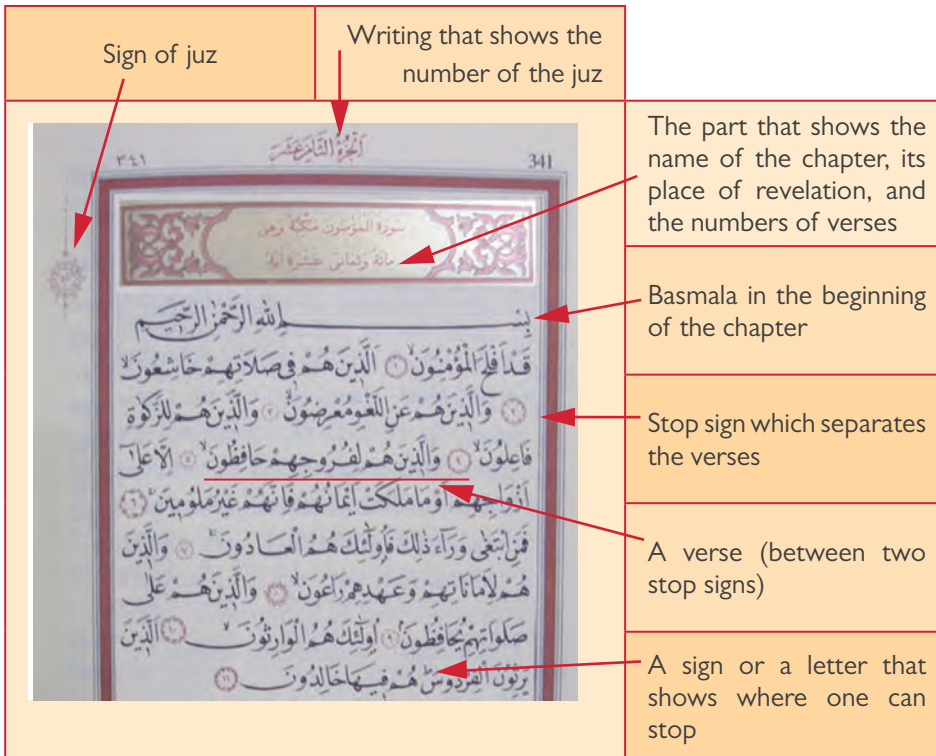 Sign of juz
Writing that shows the
number of the juz
اَلْجُزْءُ الثَّامِنَ عَشَرَ
٣٤١
341
سورة المؤمنون مكية وهى
مائة وثمانى عشرة اية
بِسْمِ اللّٰهِ الرَّحْمٰنِ الرَّحِيمِ
قَدْ اَفْلَحَ الْمُؤْمِنُونَۙ ١ اَلَّذِينَ هُمْ فِى صَلَاتِهِمْ خَاشِعُونَۙ
٢ وَالَّذِينَ هُمْ عَنِ اللَّغْوِ مُعْرِضُونَۙ ٣ وَالَّذِينَ هُمْ لِلزَّكٰوةِ
فَاعِلُونَۙ ٤ وَالَّذِينَ هُمْ لِفُرُوجِهِمْ حَافِظُونَۙ ٥ اِلَّا عَلٰٓى
اَزْوَاجِهِمْ اَوْ مَا مَلَكَتْ اَيْمَانُهُمْ فَاِنَّهُمْ غَيْرُ مَلُومِينَۚ ٦
فَمَنِ ابْتَغٰى وَرَٓاءَ ذٰلِكَ فَاُولٰٓئِكَ هُمُ الْعَادُونَۚ ٧ وَالَّذِينَ
هُمْ لِاَمَانَاتِهِمْ وَعَهْدِهِمْ رَاعُونَۙ ٨ وَالَّذِينَ هُمْ عَلٰى
صَلَوَاتِهِمْ يُحَافِظُونَۘ ٩ اُولٰٓئِكَ هُمُ الْوَارِثُونَۙ ١٠ اَلَّذِينَ
يَرِثُونَ الْفِرْدَوْسَۜ هُمْ فِيهَا خَالِدُونَ ١١
The part that shows the
name of the chapter, its
place of revelation, and
the numbers of verses
Basmala in the beginning
of the chapter
Stop sign which separates
the verses
A verse (between two
stop signs)
A sign or a letter that
shows where one can
stop